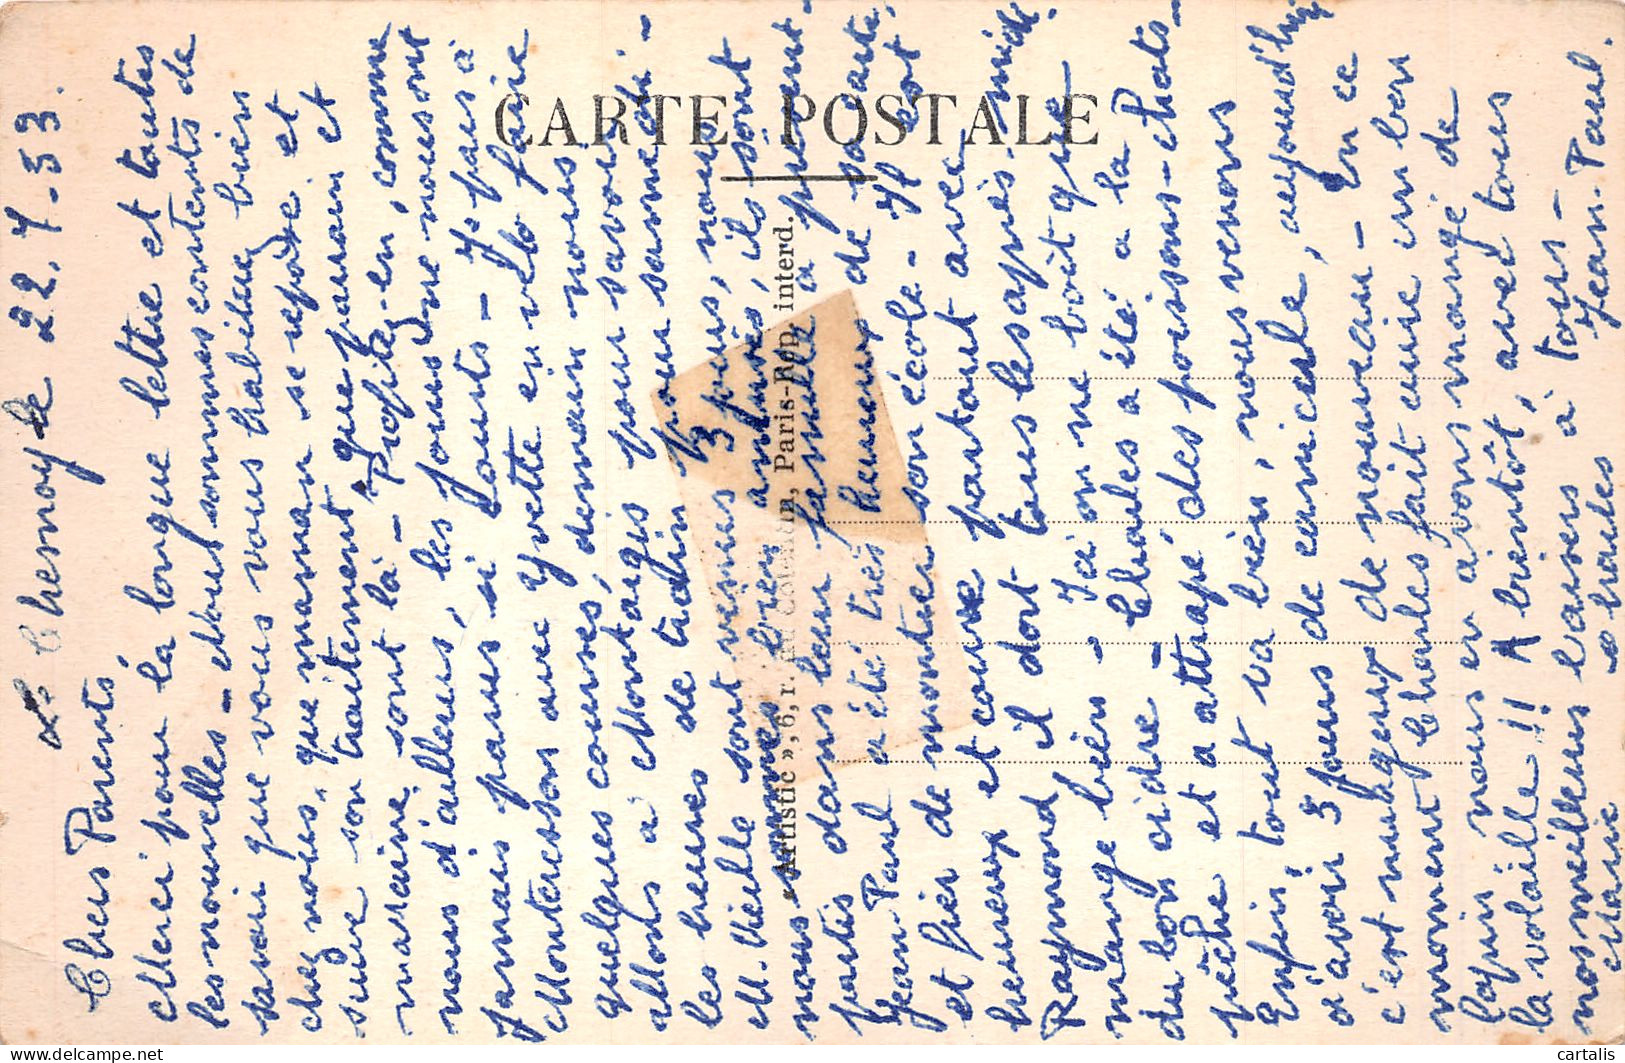 CARTE POSTALE
« Artistic », 6, r. Paris-Rep. interd.
Chesnoy le 22.7.53
Chers Parents,
Merci pour la longue lettre et toutes
les nouvelles - Nous sommes contents de
savoir que vous vous habituez bien
chez nous, que maman se repose et
suive son traitement, que parrain et
marraine sont là - Profitez-en, comme
nous d'ailleurs, les jours que nous sont
jamais parus si courts - Je pars à
Montcresson avec Yvette en vélo faire
quelques courses, demain nous
allons à Montargis pour savoir
les heures de train pour samedi -
M. Vielle sont venus 3 jours, nous
nous sommes bien amusés, ils sont
partis dans leur famille à présent -
Jean-Paul a été très heureux de sa carte
et fier de montrer son école - Il est
heureux et court partout avec
Raymond il dort tous les après-midi.
mange bien - Ici on ne boit que
du bon cidre - Charles a été à la
pêche et a attrapé des poissons-chats -
Enfin, tout va bien, nous venons
d'avoir 5 jours de canicule, aujourd'hui
c'est nuageux de nouveau - En ce
moment Charles fait cuire un bon
lapin nous en avons mangé de
la volaille !! A bientôt, avec tous
nos meilleurs baisers à tous -
Charles Jean-Paul.
cartalis